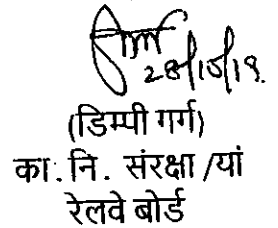 28/10/19.
(डिम्पी गर्ग)
का. नि. संरक्षा /यां
रेलवे बोर्ड